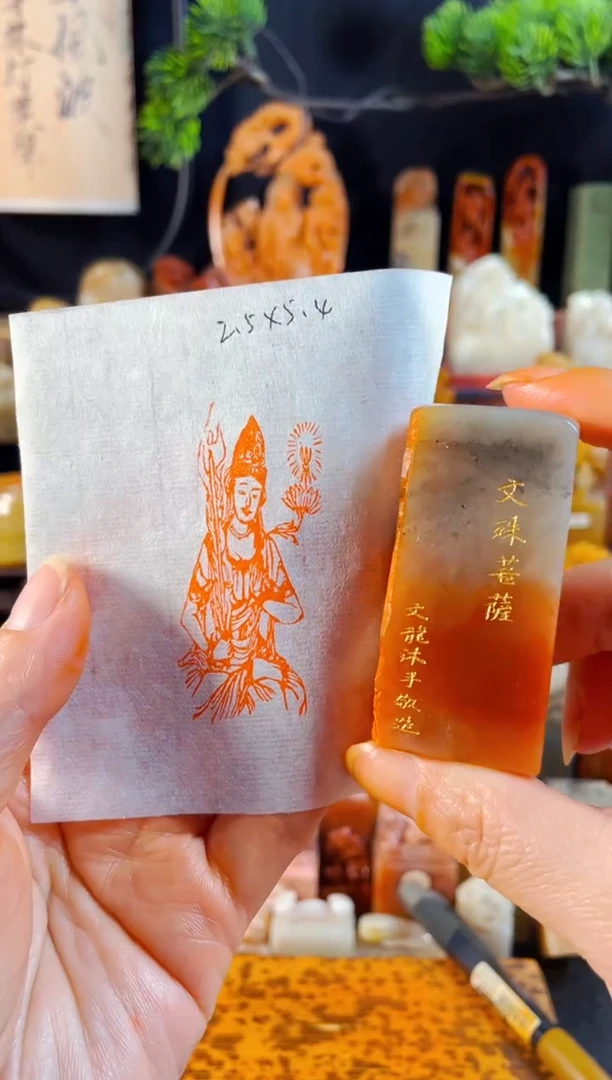 2.5×5.4
文殊菩薩
文龍沐手敬造